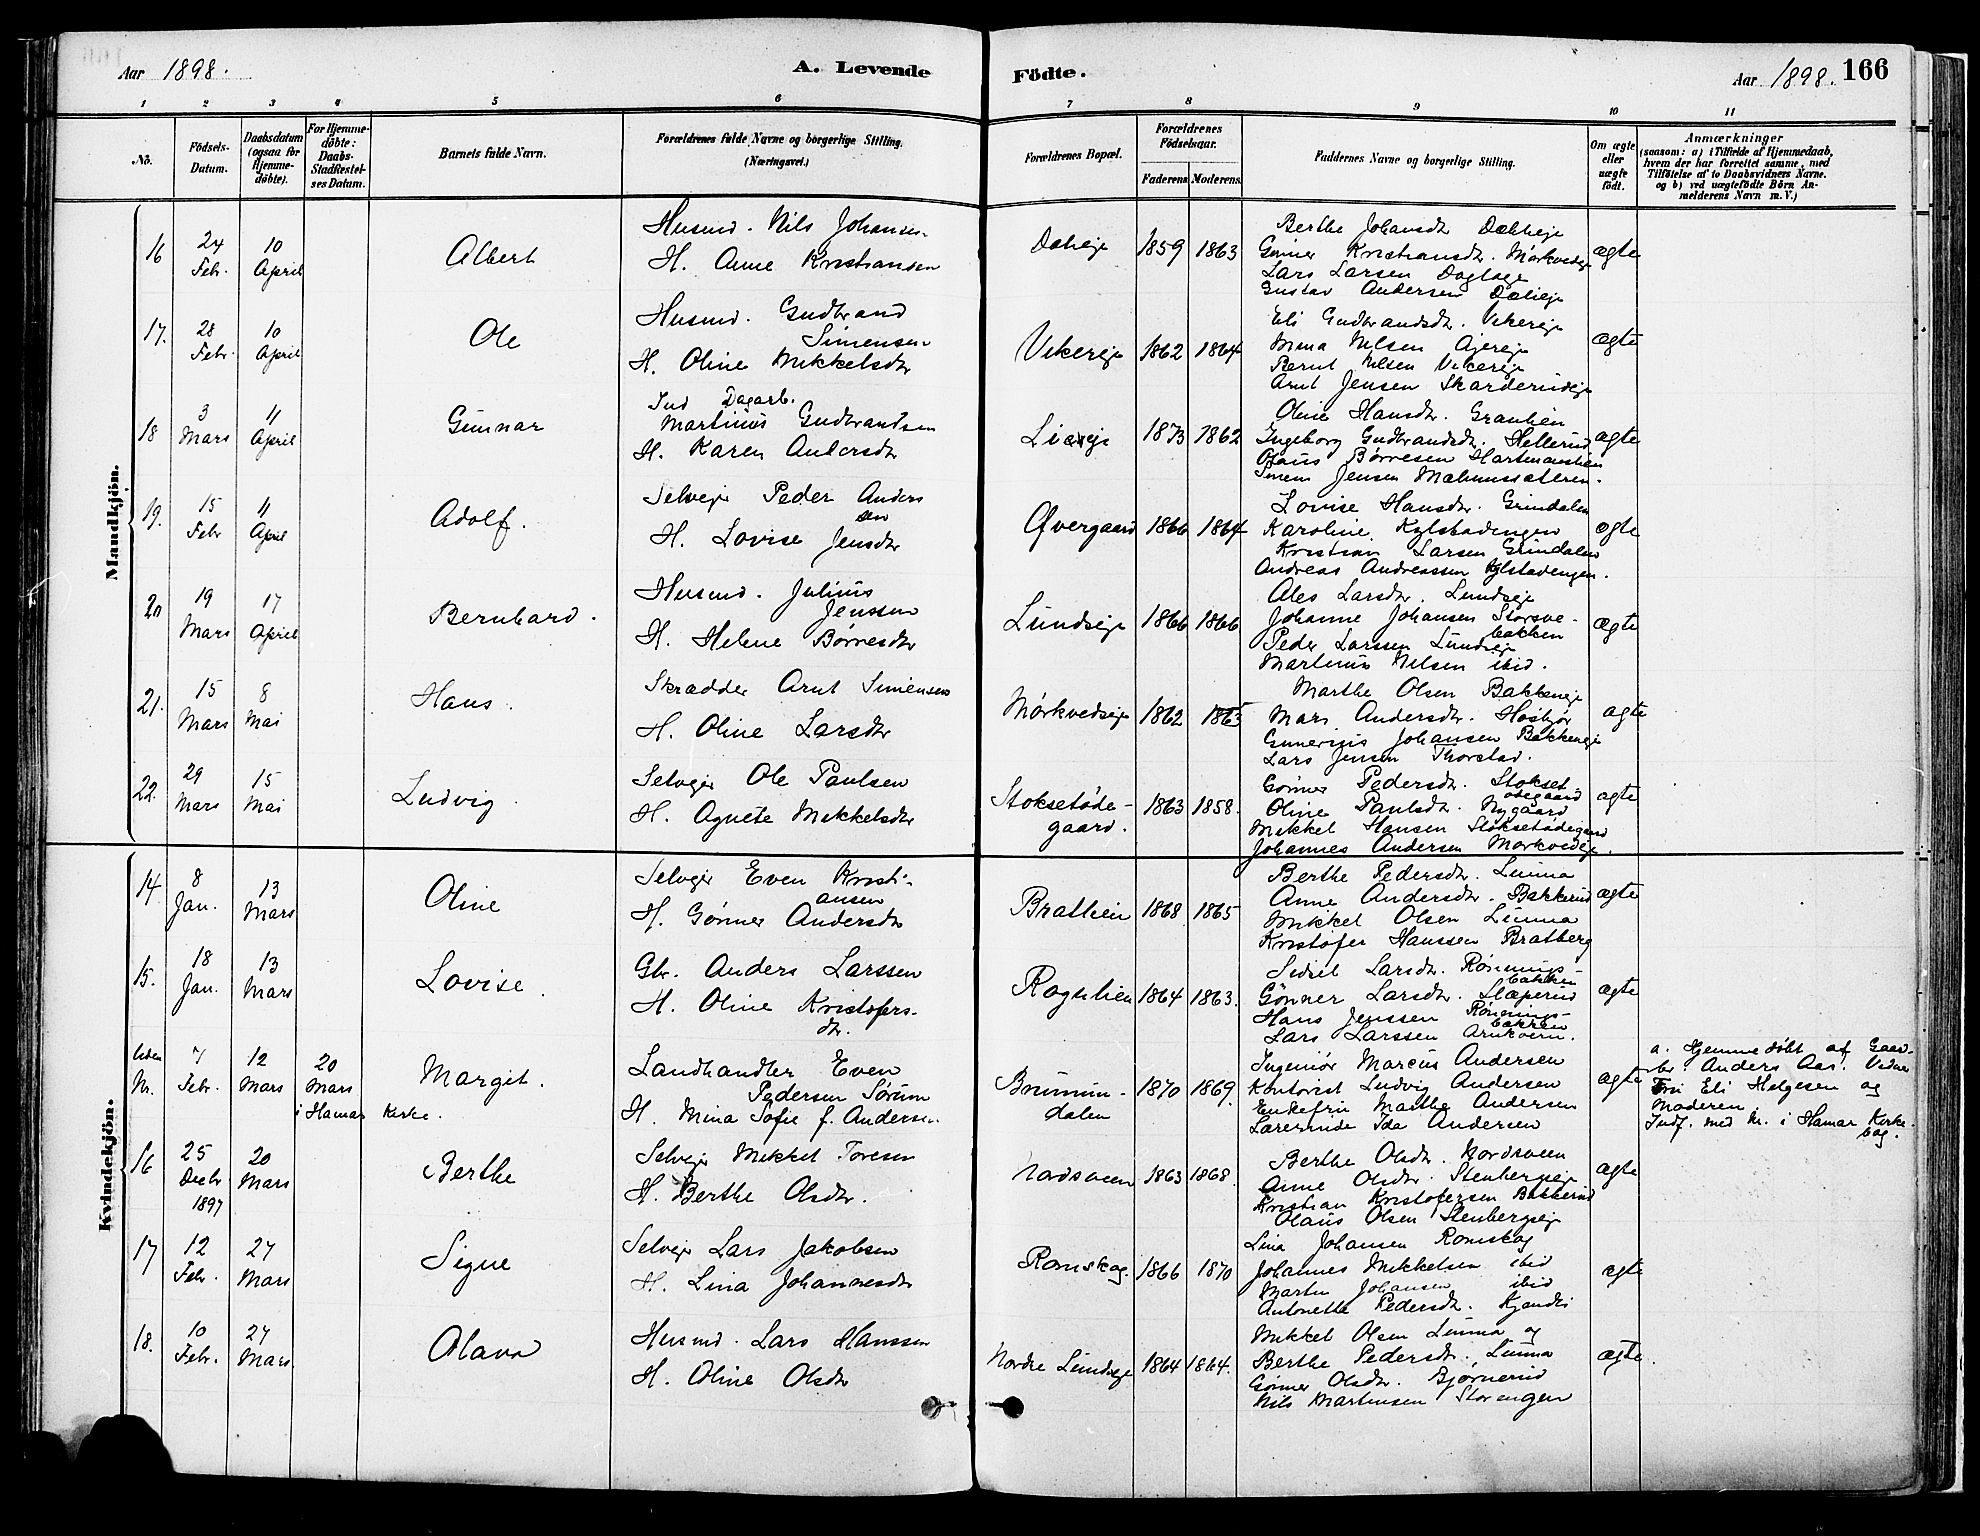 Aar 1898. A. Levende Födte. Aar 1898. 166
1 2 3 4 5 6 7 8 9 10 11
No. Födsels-Datum. Daabsdatum (ogsaa for Hjemme-döbte). For Hjemme-döbte: Daabs-Stadfæstelses Datum. Barnets fulde Navn. Forældrenes fulde Navne og borgerlige Stilling. (Næringsvei.) Forældrenes Bopæl. Forældrenes Födselsaar. Faderens Moderens. Faddernes Navne og borgerlige Stilling. Om ægte eller uægte født. Anmærkninger (saasom: a) i Tilfælde af Hjemmedaab, hvem der har forrettet samme, med Tilføielse af to Daabsvidners Navne. og b) ved uægtefödte Börn Anmelderens Navn m. V.)
Mandkjön.
16 24 Febr. 10 April Albert Husmd. Nils Johansen
H. Anne Kristiansen Daleje 1859 1863 ægte
Berthe Johansdtr Dæhleje
Gønner Kristiansdtr. Mørkvedeje
Lars Larsen Doglage
Gustav Andersen Dæhleje
17. 28 Febr. 10 April Ole Husmd. Gudbrand
Simensen
H. Oline Mikkelsdtr Vikereje 1862 1864 ægte
Eli Gudbrandsdtr. Vikereje
Mina Nilsen Ajereje
Bernt Nilsen Vikereje
Arnt Jensen Skarderudeje
18 3 Mars 11 April Gunnar Ind Dagarb.
Martinus Gudbrandsen
H. Karen Andersdtr Lieeje 1873 1862 ægte
Oline Hansdtr. Granlien
Ingeborg Gudbrandsdtr. Hellerud
Olaus Børresen
Simen Jensen
19. 15 Febr 11 April Adolf. Selveje Peder Anders
sen
H. Lovise Jensdtr Øvergaard 1866 1864 ægte
Lovise Hansdtr. Grindalen
Karoline Kylstadengen
Kristian Larsen Grindalen
Andreas Andreassen Kylstadengen.
20 19 Mars 17 April Bernhard. Husmd. Julius
Jenssen
H. Helene Børresdtr Lundseje 1866 1866 ægte
Ales Larsdtr. Lundseje
Johanne Johansen Storsve-
bakken
Peder Larssen Lundseje
Martinus Nilsen ibid.
21. 15 Mars 8 Mai Hans. Skrædder Arnt Simensen
H. Oline Larsdtr Mørkvedseje 1862 1865 ægte
Marthe Olsen Bakkeneje
Mari Andersdtr. Hosbjør
Gunerius Johansen Bakkeneje
Lars Jensen Thorstad.
22. 29 Mars 15 Mai Ludvig. Selvejer Ole Paulsen
H. Agnete Mikkelsdtr Stoksetøde-
gaard. 1863 1858. ægte
Gønner Pedersdtr. Stokset
ødegaard
Oline Paulsdtr. Nygaard
Mikkel Hansen Stoksetødegaard
Johannes Andersen Mørkvedeje.
Kvindekjön.
14. 8 Jan. 13 Mars Oline Selvejer Even Kristi-
ansen
H. Gønner Andersdtr Bratlien 1868 1865 ægte
Berthe Pedersdtr. Linna
Anne Andersdtr. Bakkerud
Mikkel Olsen Linna
Kristofer Hanssen Bratberg
15. 18 Jan. 13 Mars Lovise. Gbr. Anders Larssen
H. Oline Kristofers-
dtr. Rognlien 1864 1863. ægte
Sidsel Larsdtr. Rønnings-
bakken
Gønner Larsdtr. Slæperud
Hans Jenssen Rønnings-
bakken
Lars Larssen Arnkvern.
Uden Nr. 7 Febr. 12 Mars 20 Mars i Hamar Kirke. Margit. Landhandler Even
Pedersen Sørum
H. Mina Sofie f. Andersen Brumun-
dalen 1870 1869. ægte
Ingeniør Marcus Andersen
Kontorist Ludvig Andersen
Enkefru Marthe Andersen
Lærerinde Ida Andersen
a. Hjemmedøbt af Gaard-
br. Anders Aas. Vidner
Fru Eli Helgesen og
Moderen
Indf. med Nr. i Hamar Kirke-
bog.
16 25 Decbr 1897 20 Mars Berthe Selveje Mikkel Toresen
H. Berthe Olsdtr. Nordsveen 1863 1868. ægte
Berthe Olsdtr. Nordsveen
Anne Olsdtr. Stenbergseje
Kristian Kristofersen Bakkerud
Olaus Olsen Stenbergseje
17 12 Febr. 27 Mars Signe Selveje Lars Jakobsen
H. Lina Johannesdtr Romskog. 1866 1870 ægte
Lina Johansen Romskog
Johannes Mikkelsen ibid
Martin Johansen ibid
Antonette Pedersdtr. Kjendli
18. 10 Febr. 27 Mars Olava Husmd. Lars Hanssen
H. Oline Olsdtr Nordre Lundseje 1864 1864. ægte.
Mikkel Olsen Linna og
Berthe Pedersdtr. Linna
Gønner Olsdtr. Bjørnerud
Nils Martinsen Storengen